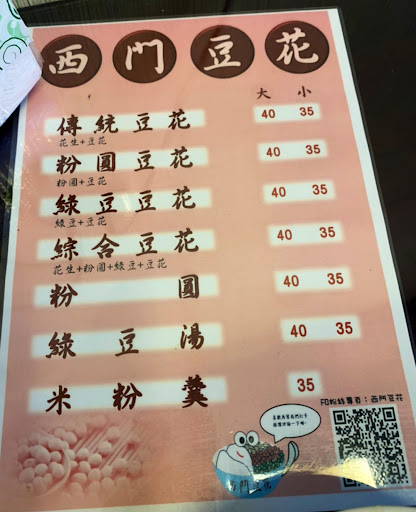 西門豆花
大 小
傳統豆花 40 35
花生+豆花
粉圓豆花 40 35
粉圓+豆花
綠豆豆花 40 35
綠豆+豆花
綜合豆花 40 35
花生+粉圓+綠豆+豆花
粉圓 40 35
綠豆湯 40 35
米粉羹 35
FB粉絲專頁：西門豆花
西門豆花